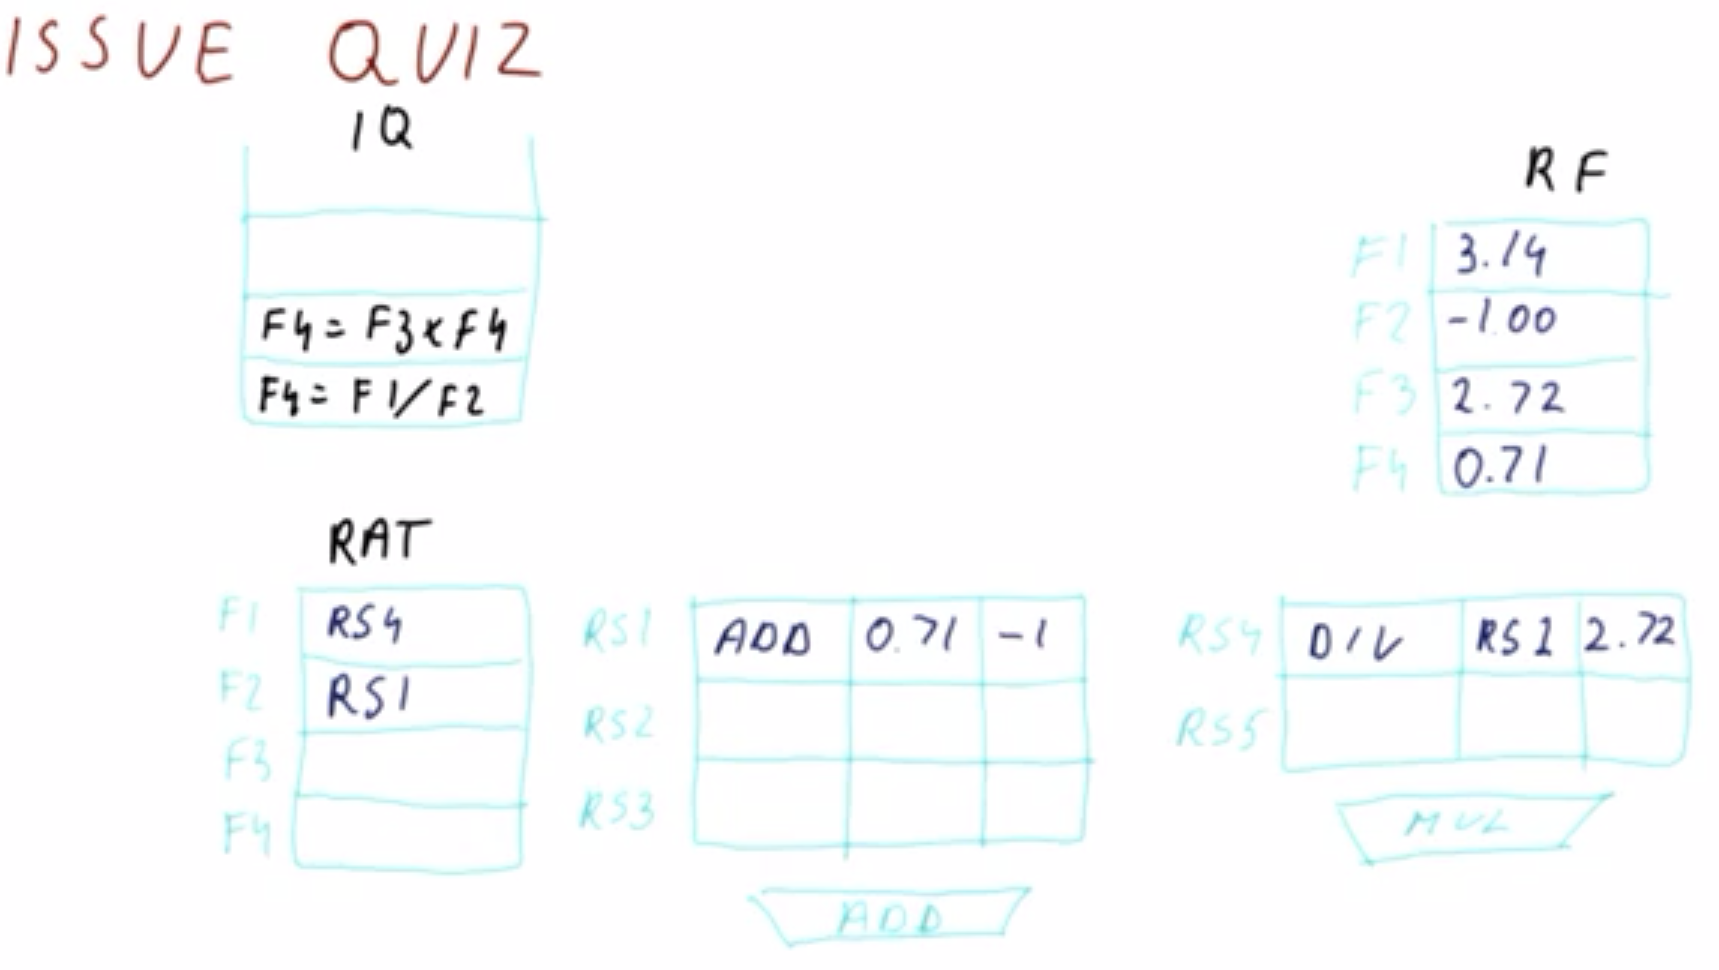 ISSUE QUIZ
IQ
F4 = F3 x F4
F4 = F1/F2
RF
F1 3.14
F2 -1.00
F3 2.72
F4 0.71
RAT
F1 RS4
F2 RS1
F3
F4
RS1 ADD 0.71 -1
RS2
RS3
ADD
RS4 DIV RS1 2.72
RS5
MUL